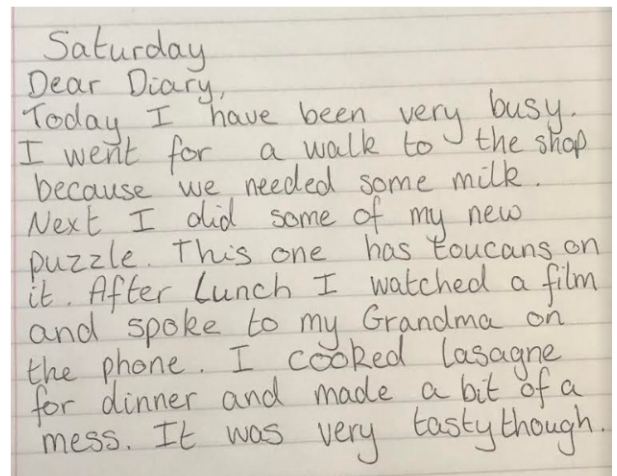 Saturday
Dear Diary,
Today I have been very busy.
I went for a walk to the shop
because we needed some milk.
Next I did some of my new
puzzle. This one has toucans on
it. After Lunch I watched a film
and spoke to my Grandma on
the phone. I cooked lasagne
for dinner and made a bit of a
mess. It was very tasty though.